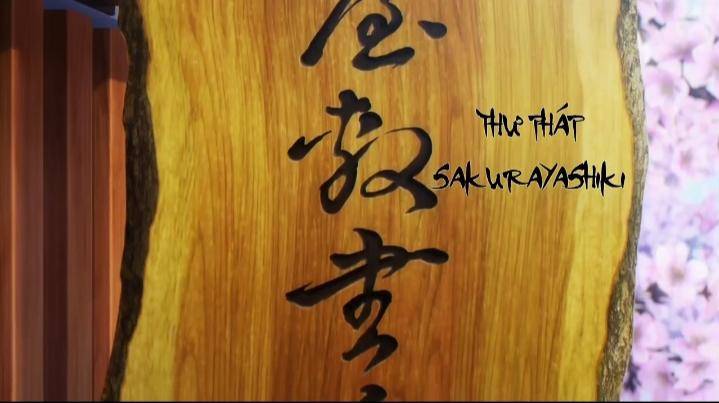 屋敷書
THƯ PHÁP
SAKURAYASHIKI